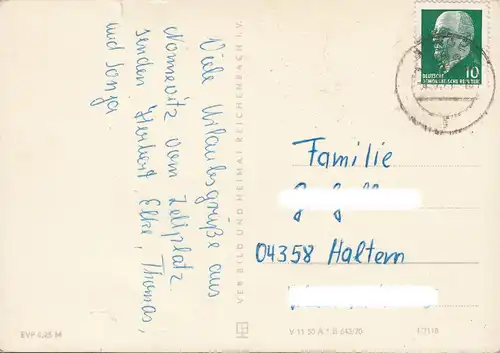 Viele Urlaubsgrüße aus
Nonnevitz vom Zeltplatz
senden Herbert, Elke, Thomas,
und Sonja
VEB BILD UND HEIMAT REICHENBACH I. V.
10
DEUTSCHE
DEMOKRATISCHE REPUBLIK
Familie
04358 Haltern
EVP 0,25 M
V 11 50 A * B 643/70
1/7118